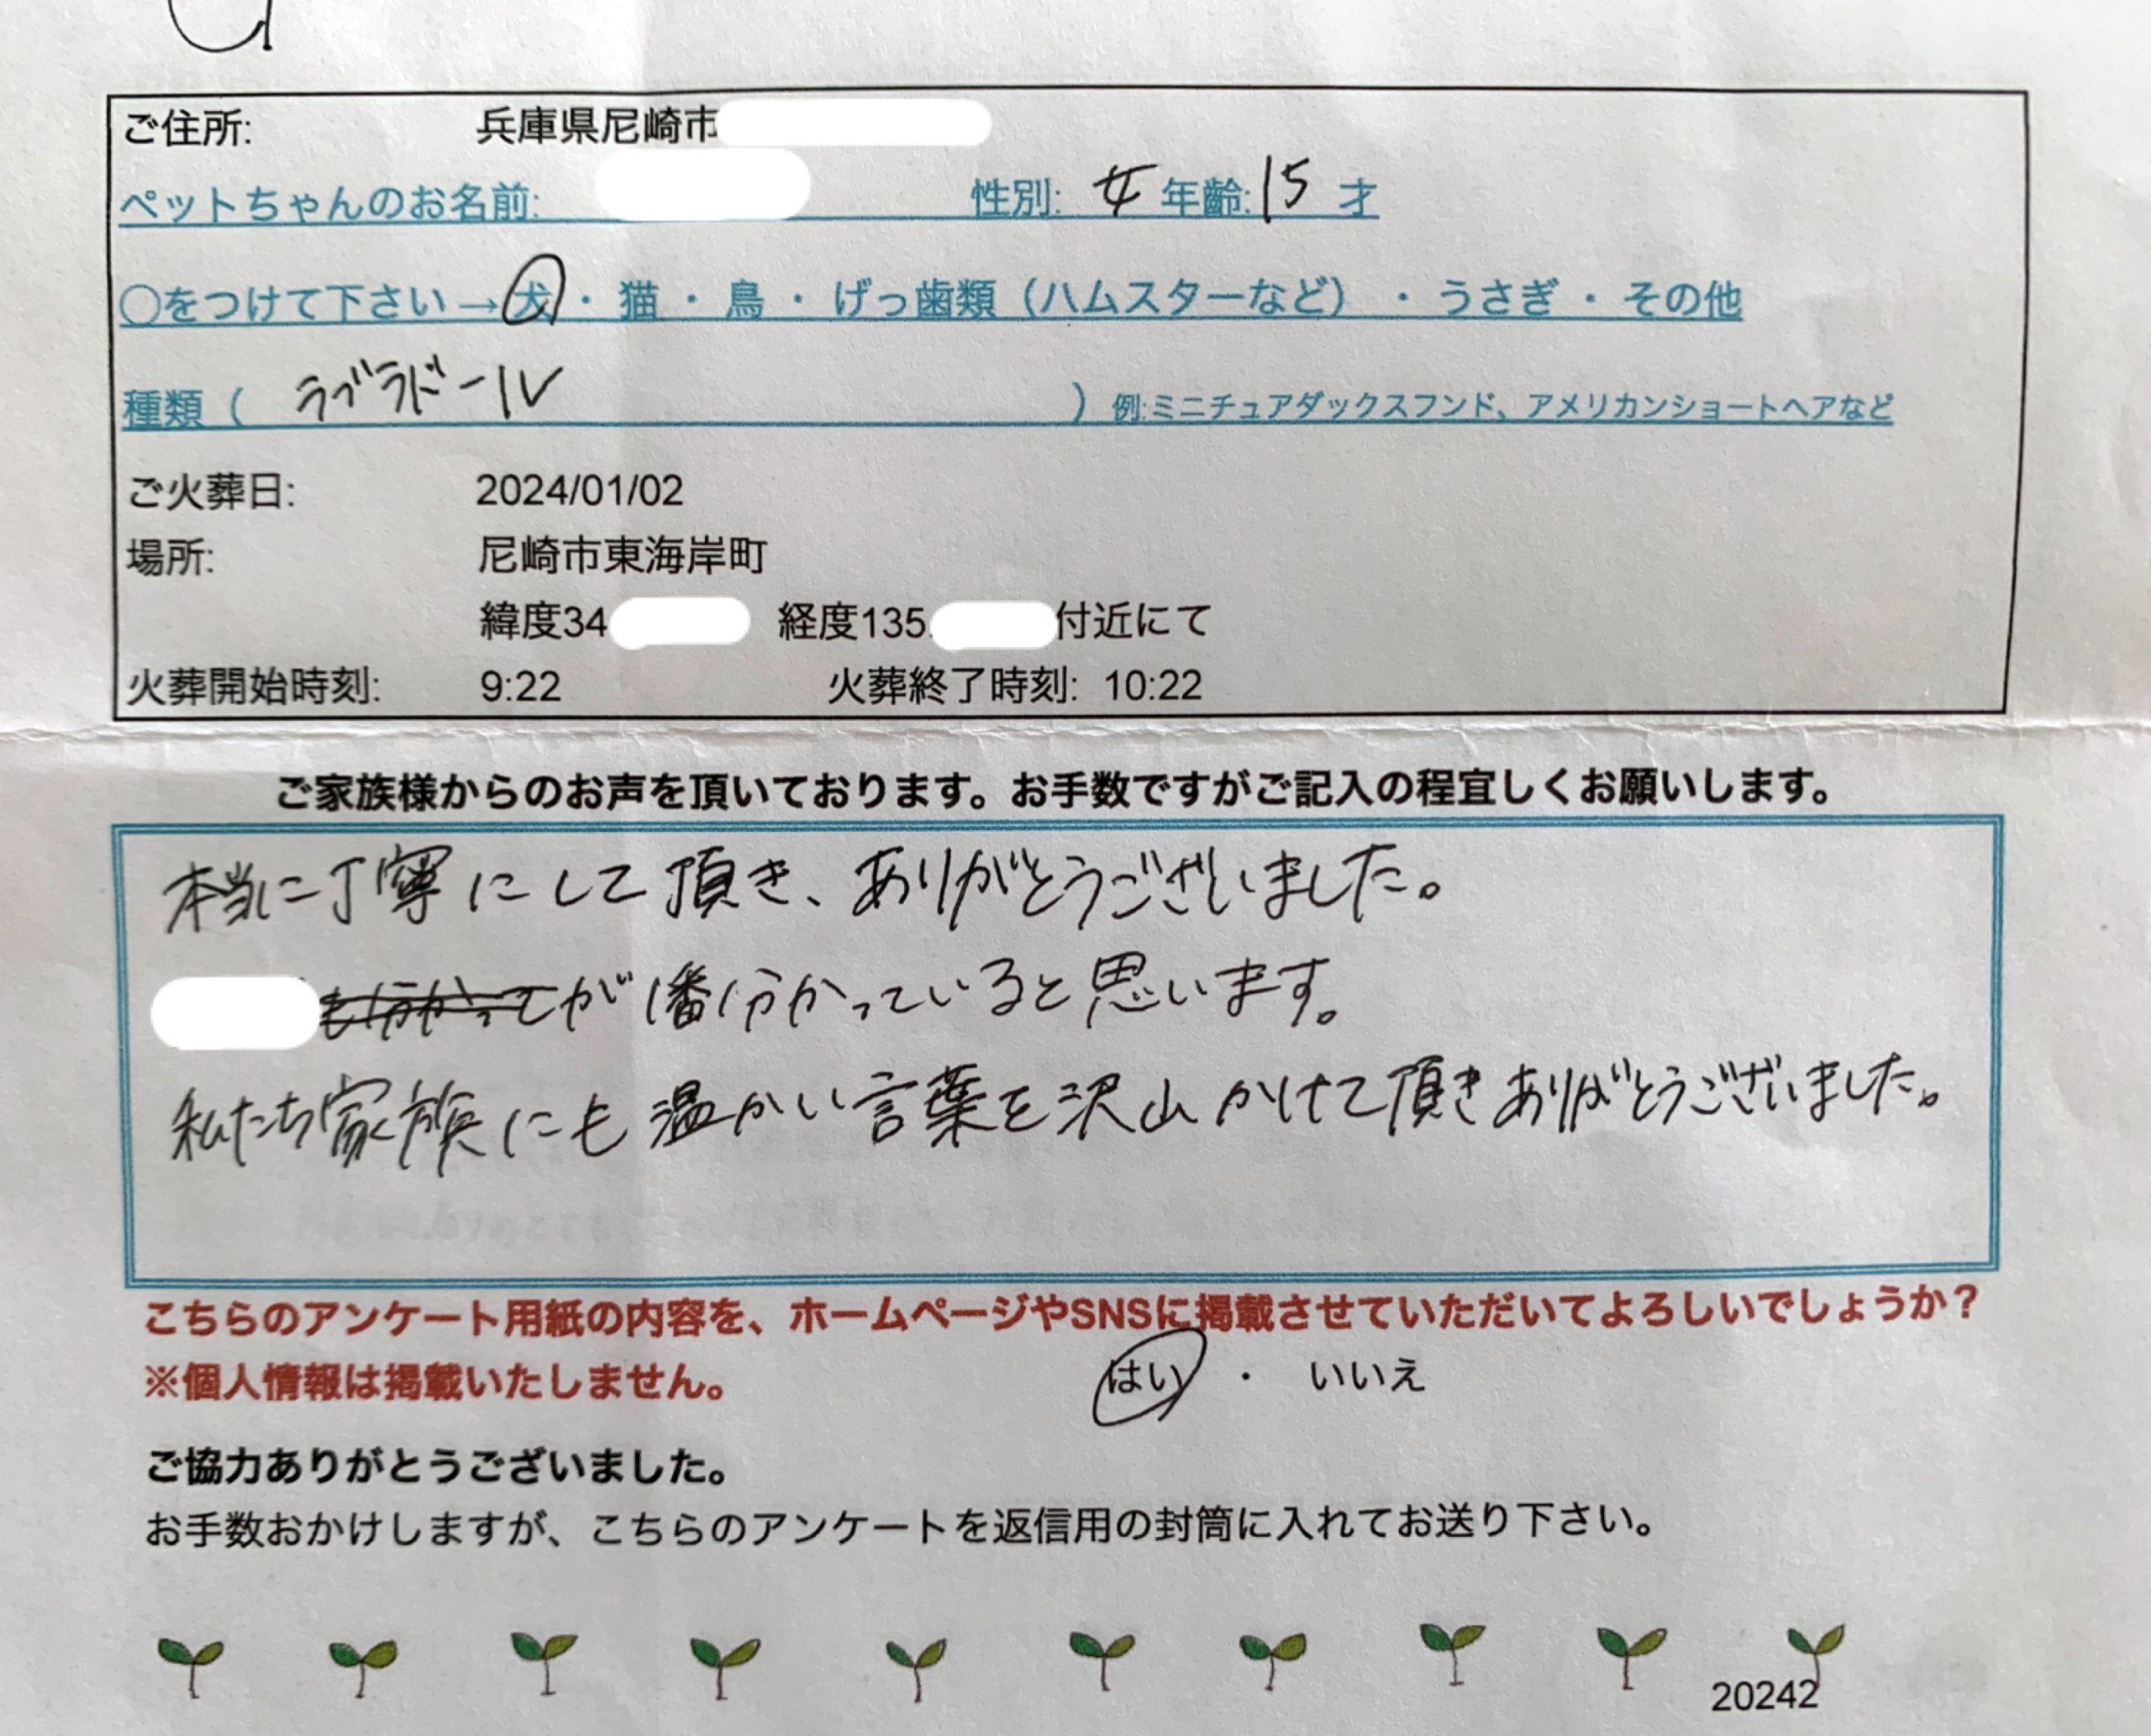 ご住所: 兵庫県尼崎市
ペットちゃんのお名前: 性別: 女 年齢: 15 才
○をつけて下さい→犬・猫・鳥・げっ歯類（ハムスターなど）・うさぎ・その他
種類（ ラブラドール ）例:ミニチュアダックスフンド、アメリカンショートヘアなど
ご火葬日: 2024/01/02
場所: 尼崎市東海岸町
緯度34 経度135. 付近にて
火葬開始時刻: 9:22 火葬終了時刻: 10:22
ご家族様からのお声を頂いております。お手数ですがご記入の程宜しくお願いします。
本当に丁寧にして頂き、ありがとうございました。
も分かってが1番分かっていると思います。
私たち家族にも温かい言葉を沢山かけて頂きありがとうございました。
こちらのアンケート用紙の内容を、ホームページやSNSに掲載させていただいてよろしいでしょうか？
※個人情報は掲載いたしません。 はい ・ いいえ
ご協力ありがとうございました。
お手数おかけしますが、こちらのアンケートを返信用の封筒に入れてお送り下さい。
20242